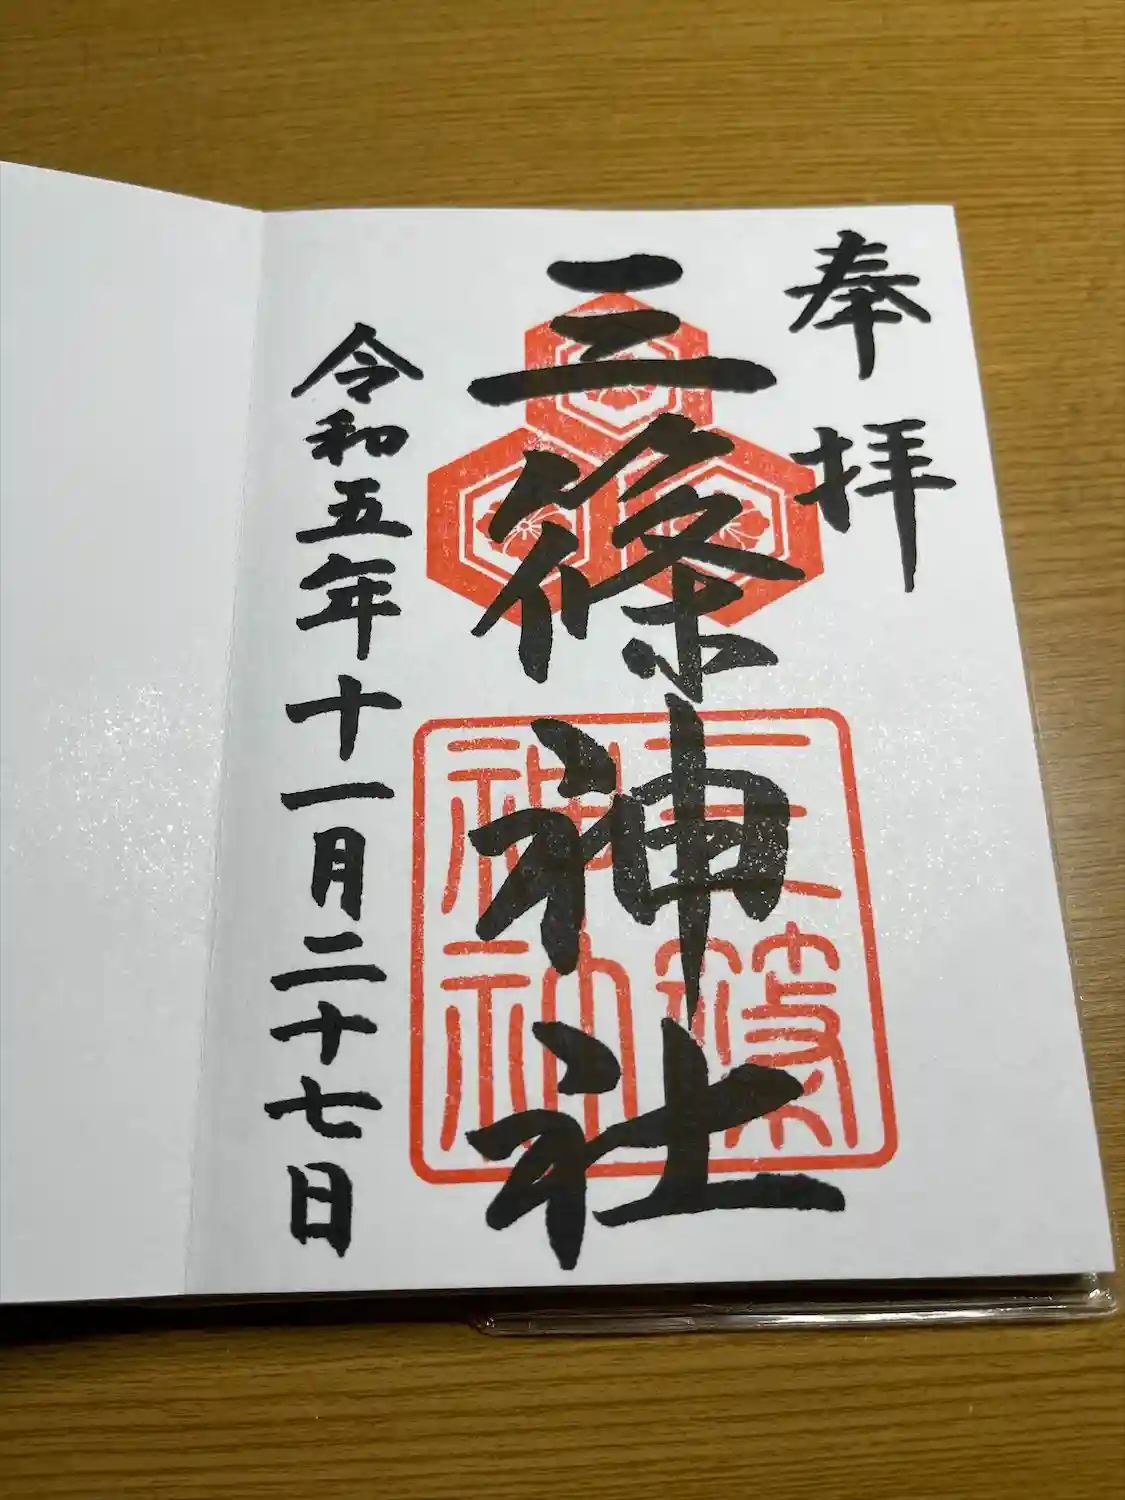 奉拝
三條神社
令和五年十一月二十七日